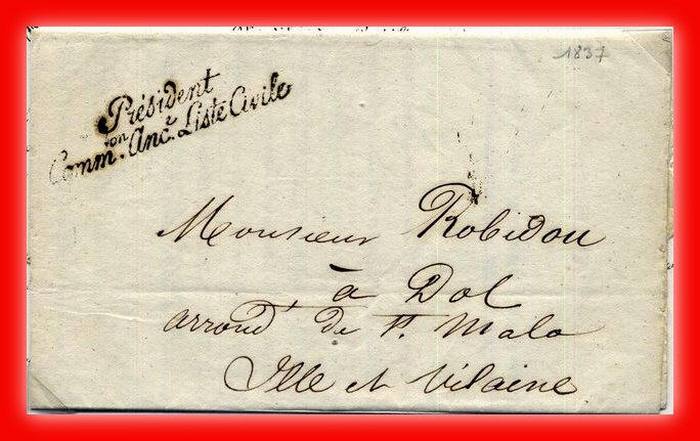 1837
Président
Comm.on Anc.e Liste Civile
Monsieur Robidou
à Dol
arrond.t de St. Malo
Ille et Vilaine